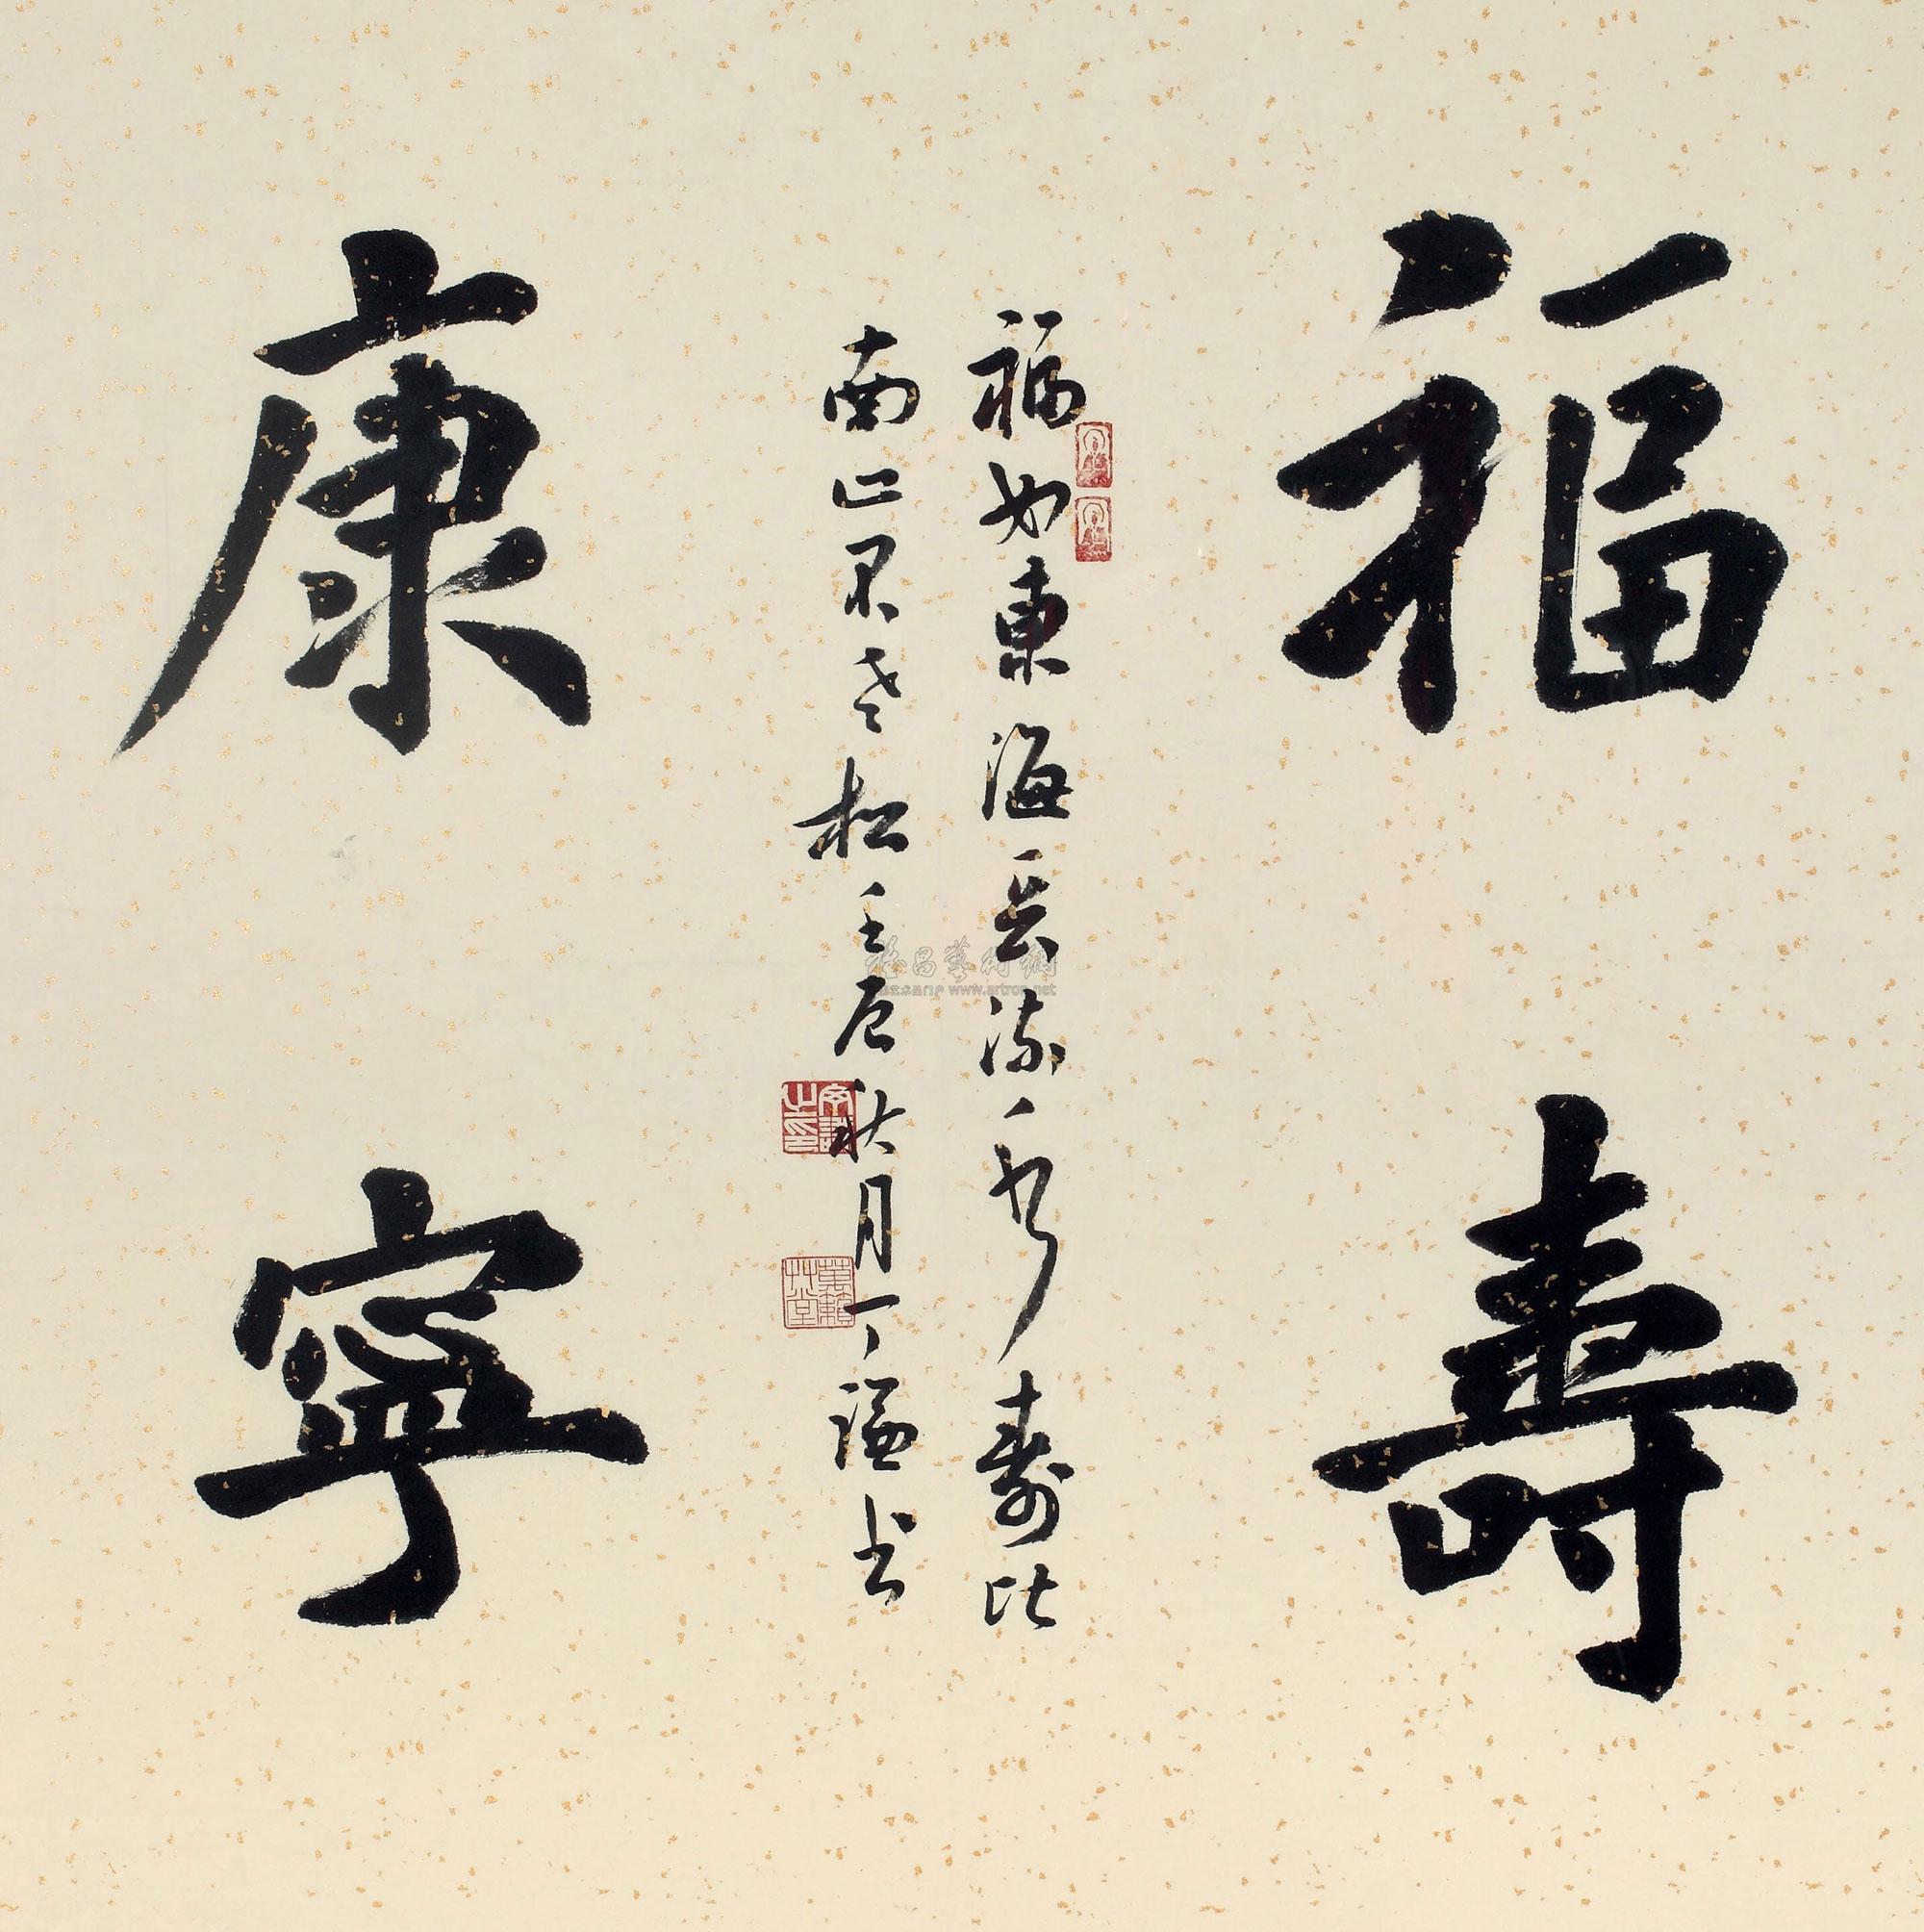 福壽
康寧
福如東海長流水壽比
南山不老松壬辰秋月一謙书
雅昌藝術網
www.artron.net